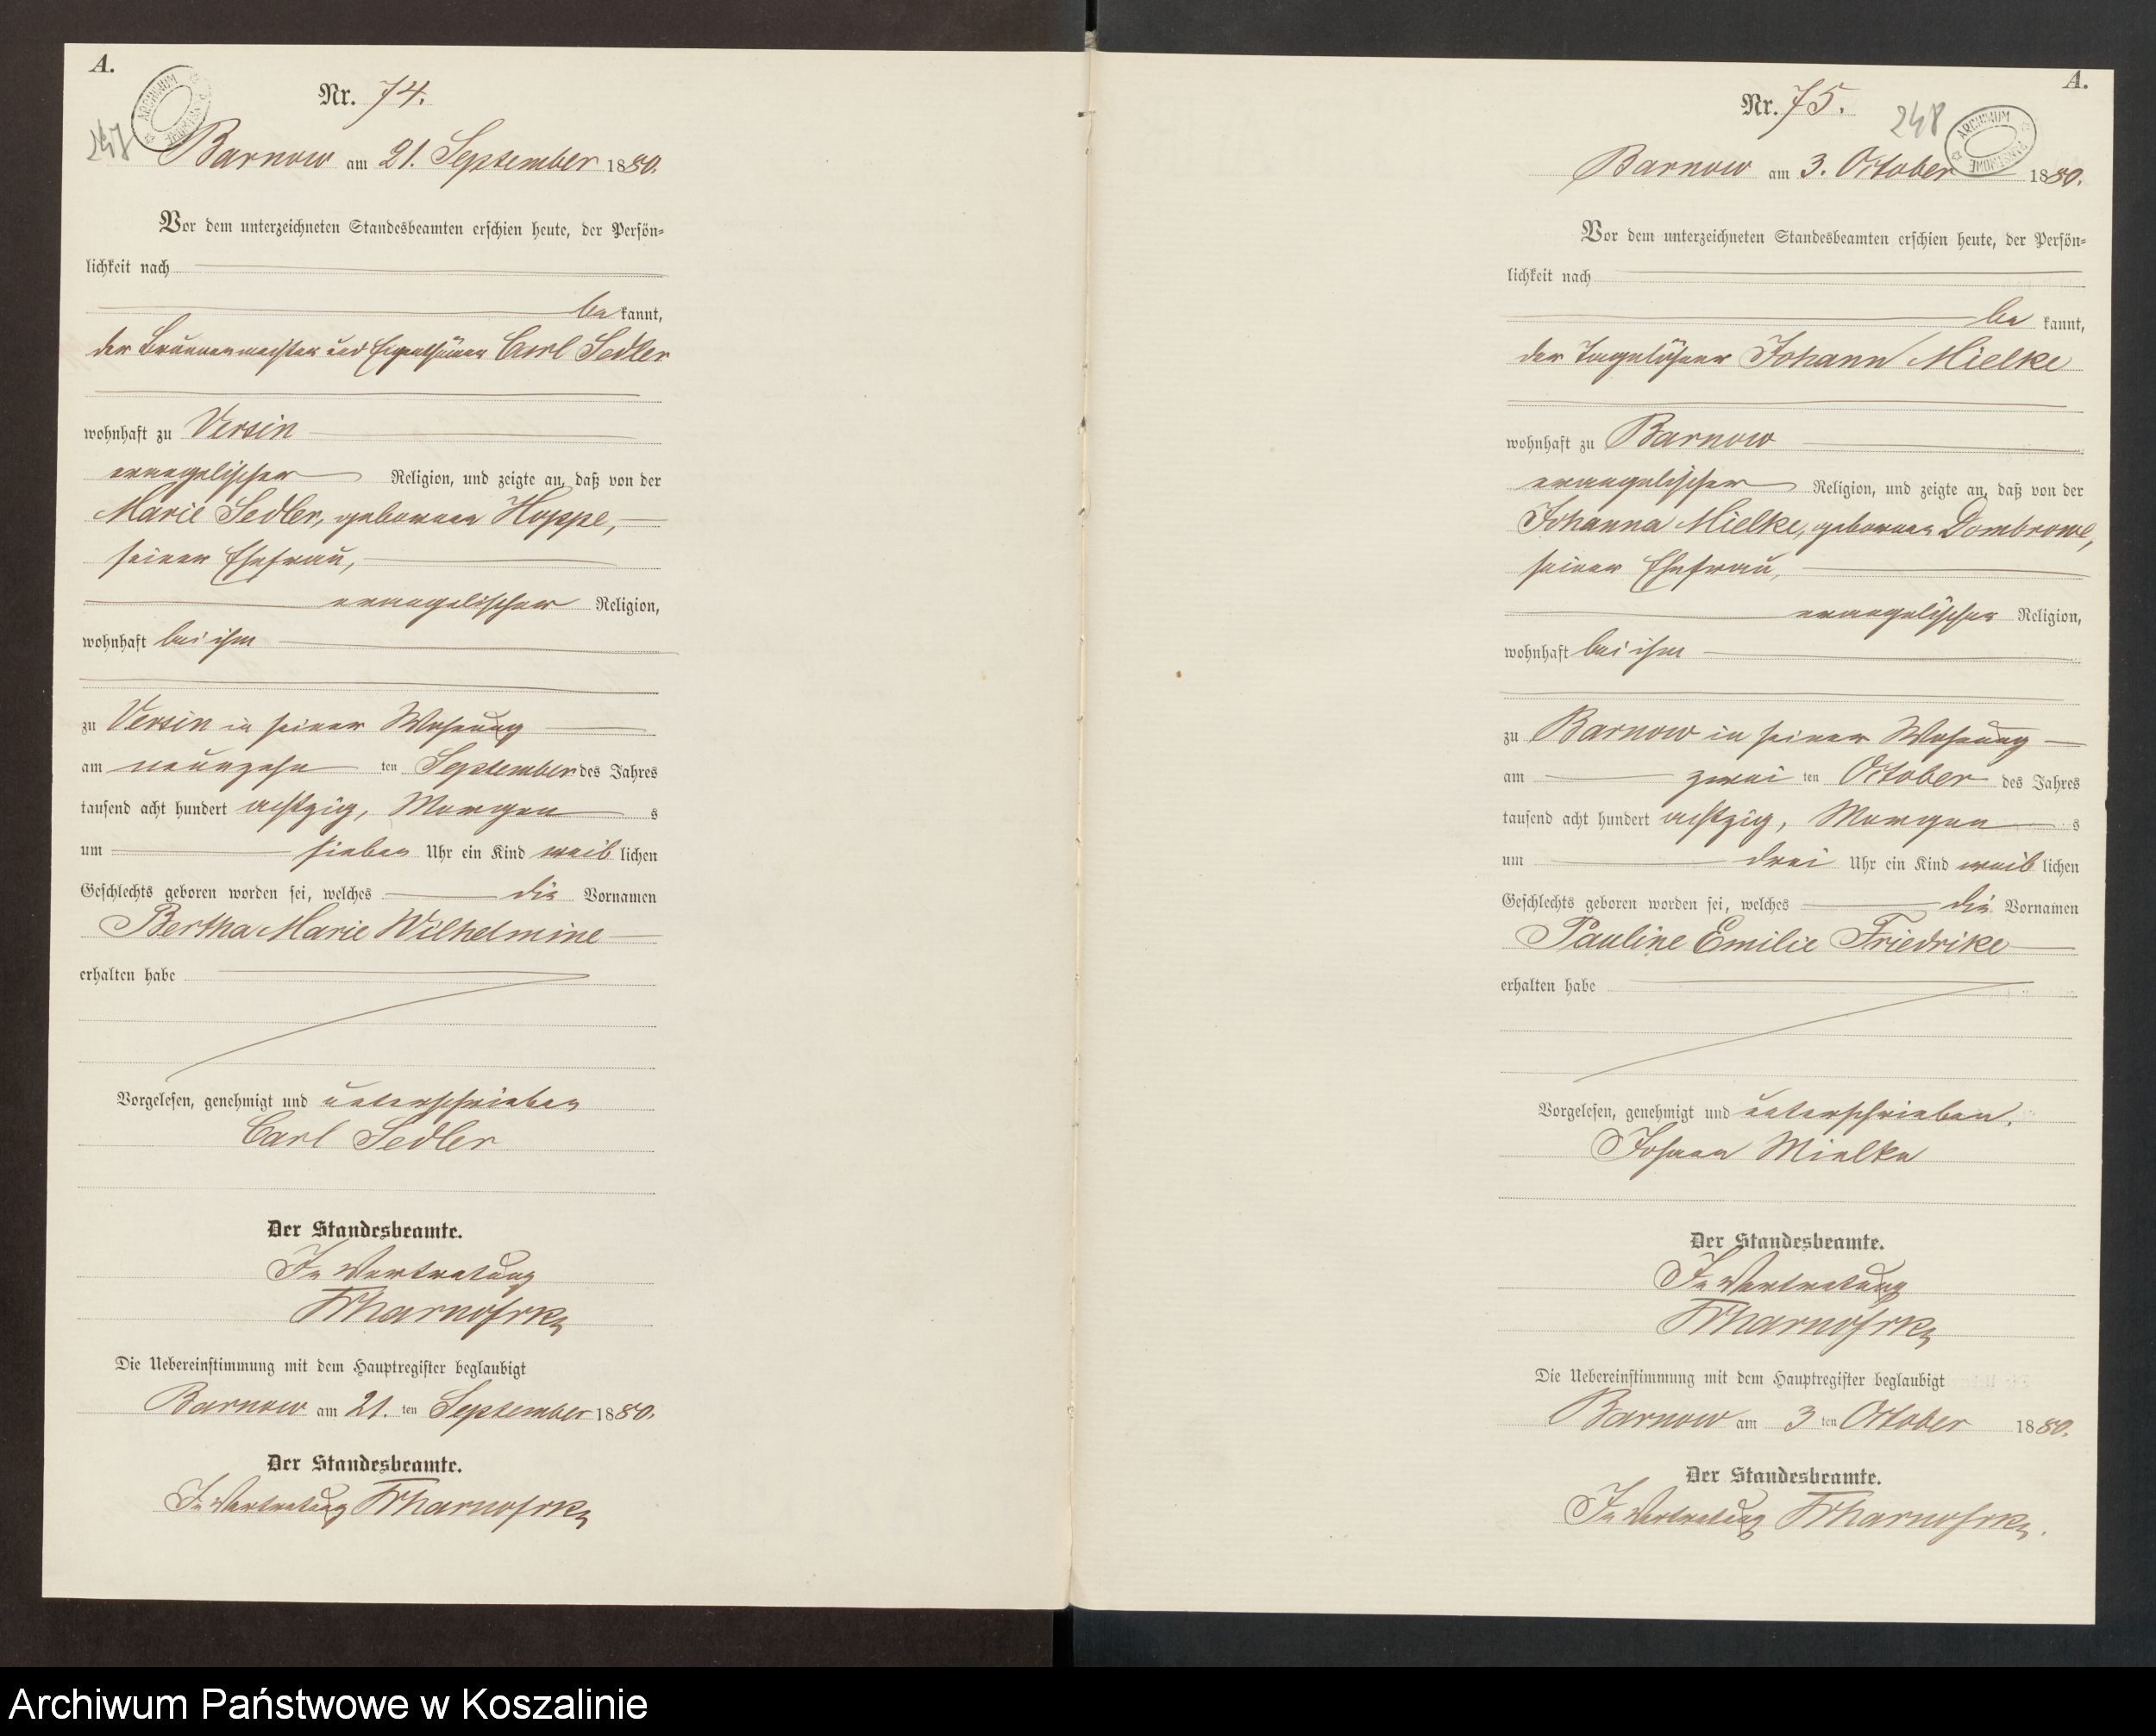 A.
Nr. 74.
247
ARCHIWUM
Barnow am 21. September 1880.
Vor dem unterzeichneten Standesbeamten erschien heute, der Persön-
lichkeit nach
be kannt,
der Brunnenmeister und Eigenthümer Carl Sedler
wohnhaft zu Versin
evangelischer Religion, und zeigte an, daß von der
Marie Sedler, geborenen Hoppe,
seiner Ehefrau,
evangelischer Religion,
wohnhaft bei ihm
zu Versin in seiner Wohnung
am neunzehn ten September des Jahres
tausend acht hundert achtzig, Morgen s
um sieben Uhr ein Kind weib lichen
Geschlechts geboren worden sei, welches die Vornamen
Bertha Marie Wilhelmine
erhalten habe
Vorgelesen, genehmigt und unterschrieben
Carl Sedler
Der Standesbeamte.
In Vertretung
Die Uebereinstimmung mit dem Hauptregister beglaubigt
Barnow am 21. ten September 1880.
Der Standesbeamte.
In Vertretung
A.
Nr. 75.
248
ARCHIWUM
Barnow am 3. October 1880.
Vor dem unterzeichneten Standesbeamten erschien heute, der Persön-
lichkeit nach
be kannt,
der Tagelöhner Johann Mielke
wohnhaft zu Barnow
evangelischer Religion, und zeigte an, daß von der
Johanna Mielke, geborenen Dombrowe,
seiner Ehefrau,
evangelischer Religion,
wohnhaft bei ihm
zu Barnow in seiner Wohnung
am zwei ten October des Jahres
tausend acht hundert achtzig, Morgen s
um drei Uhr ein Kind weib lichen
Geschlechts geboren worden sei, welches die Vornamen
Pauline Emilie Friedrike
erhalten habe
Vorgelesen, genehmigt und unterschrieben.
Johann Mielke
Der Standesbeamte.
In Vertretung
Die Uebereinstimmung mit dem Hauptregister beglaubigt
Barnow am 3 ten October 1880.
Der Standesbeamte.
In Vertretung
Archiwum Państwowe w Koszalinie